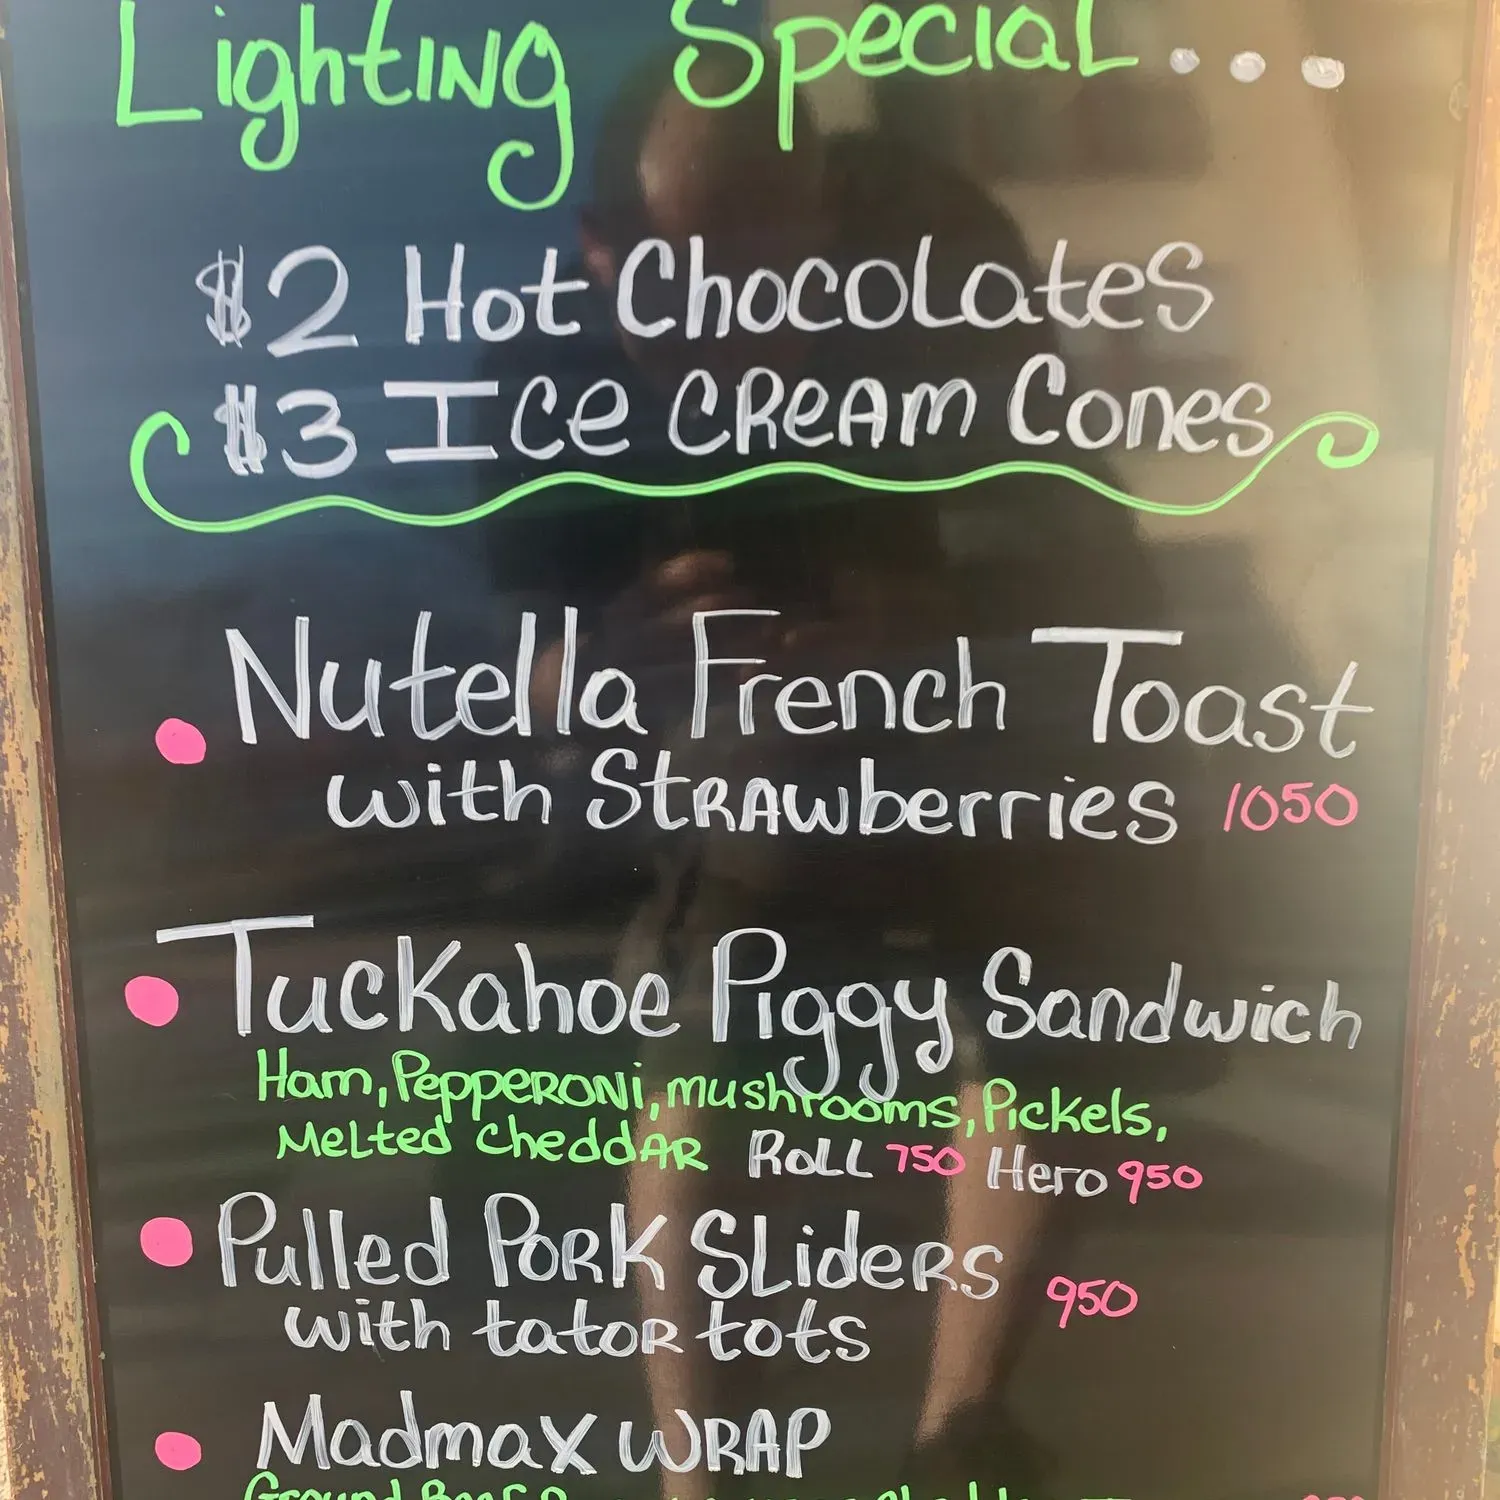 Lighting Special...
$2 Hot Chocolates
$3 Ice Cream Cones
Nutella French Toast
with Strawberries 1050
Tuckahoe Piggy Sandwich
Ham, Pepperoni, mushrooms, Pickels,
Melted Cheddar Roll 750 Hero 950
Pulled Pork Sliders
with tator tots 950
Madmax Wrap
Ground Beef